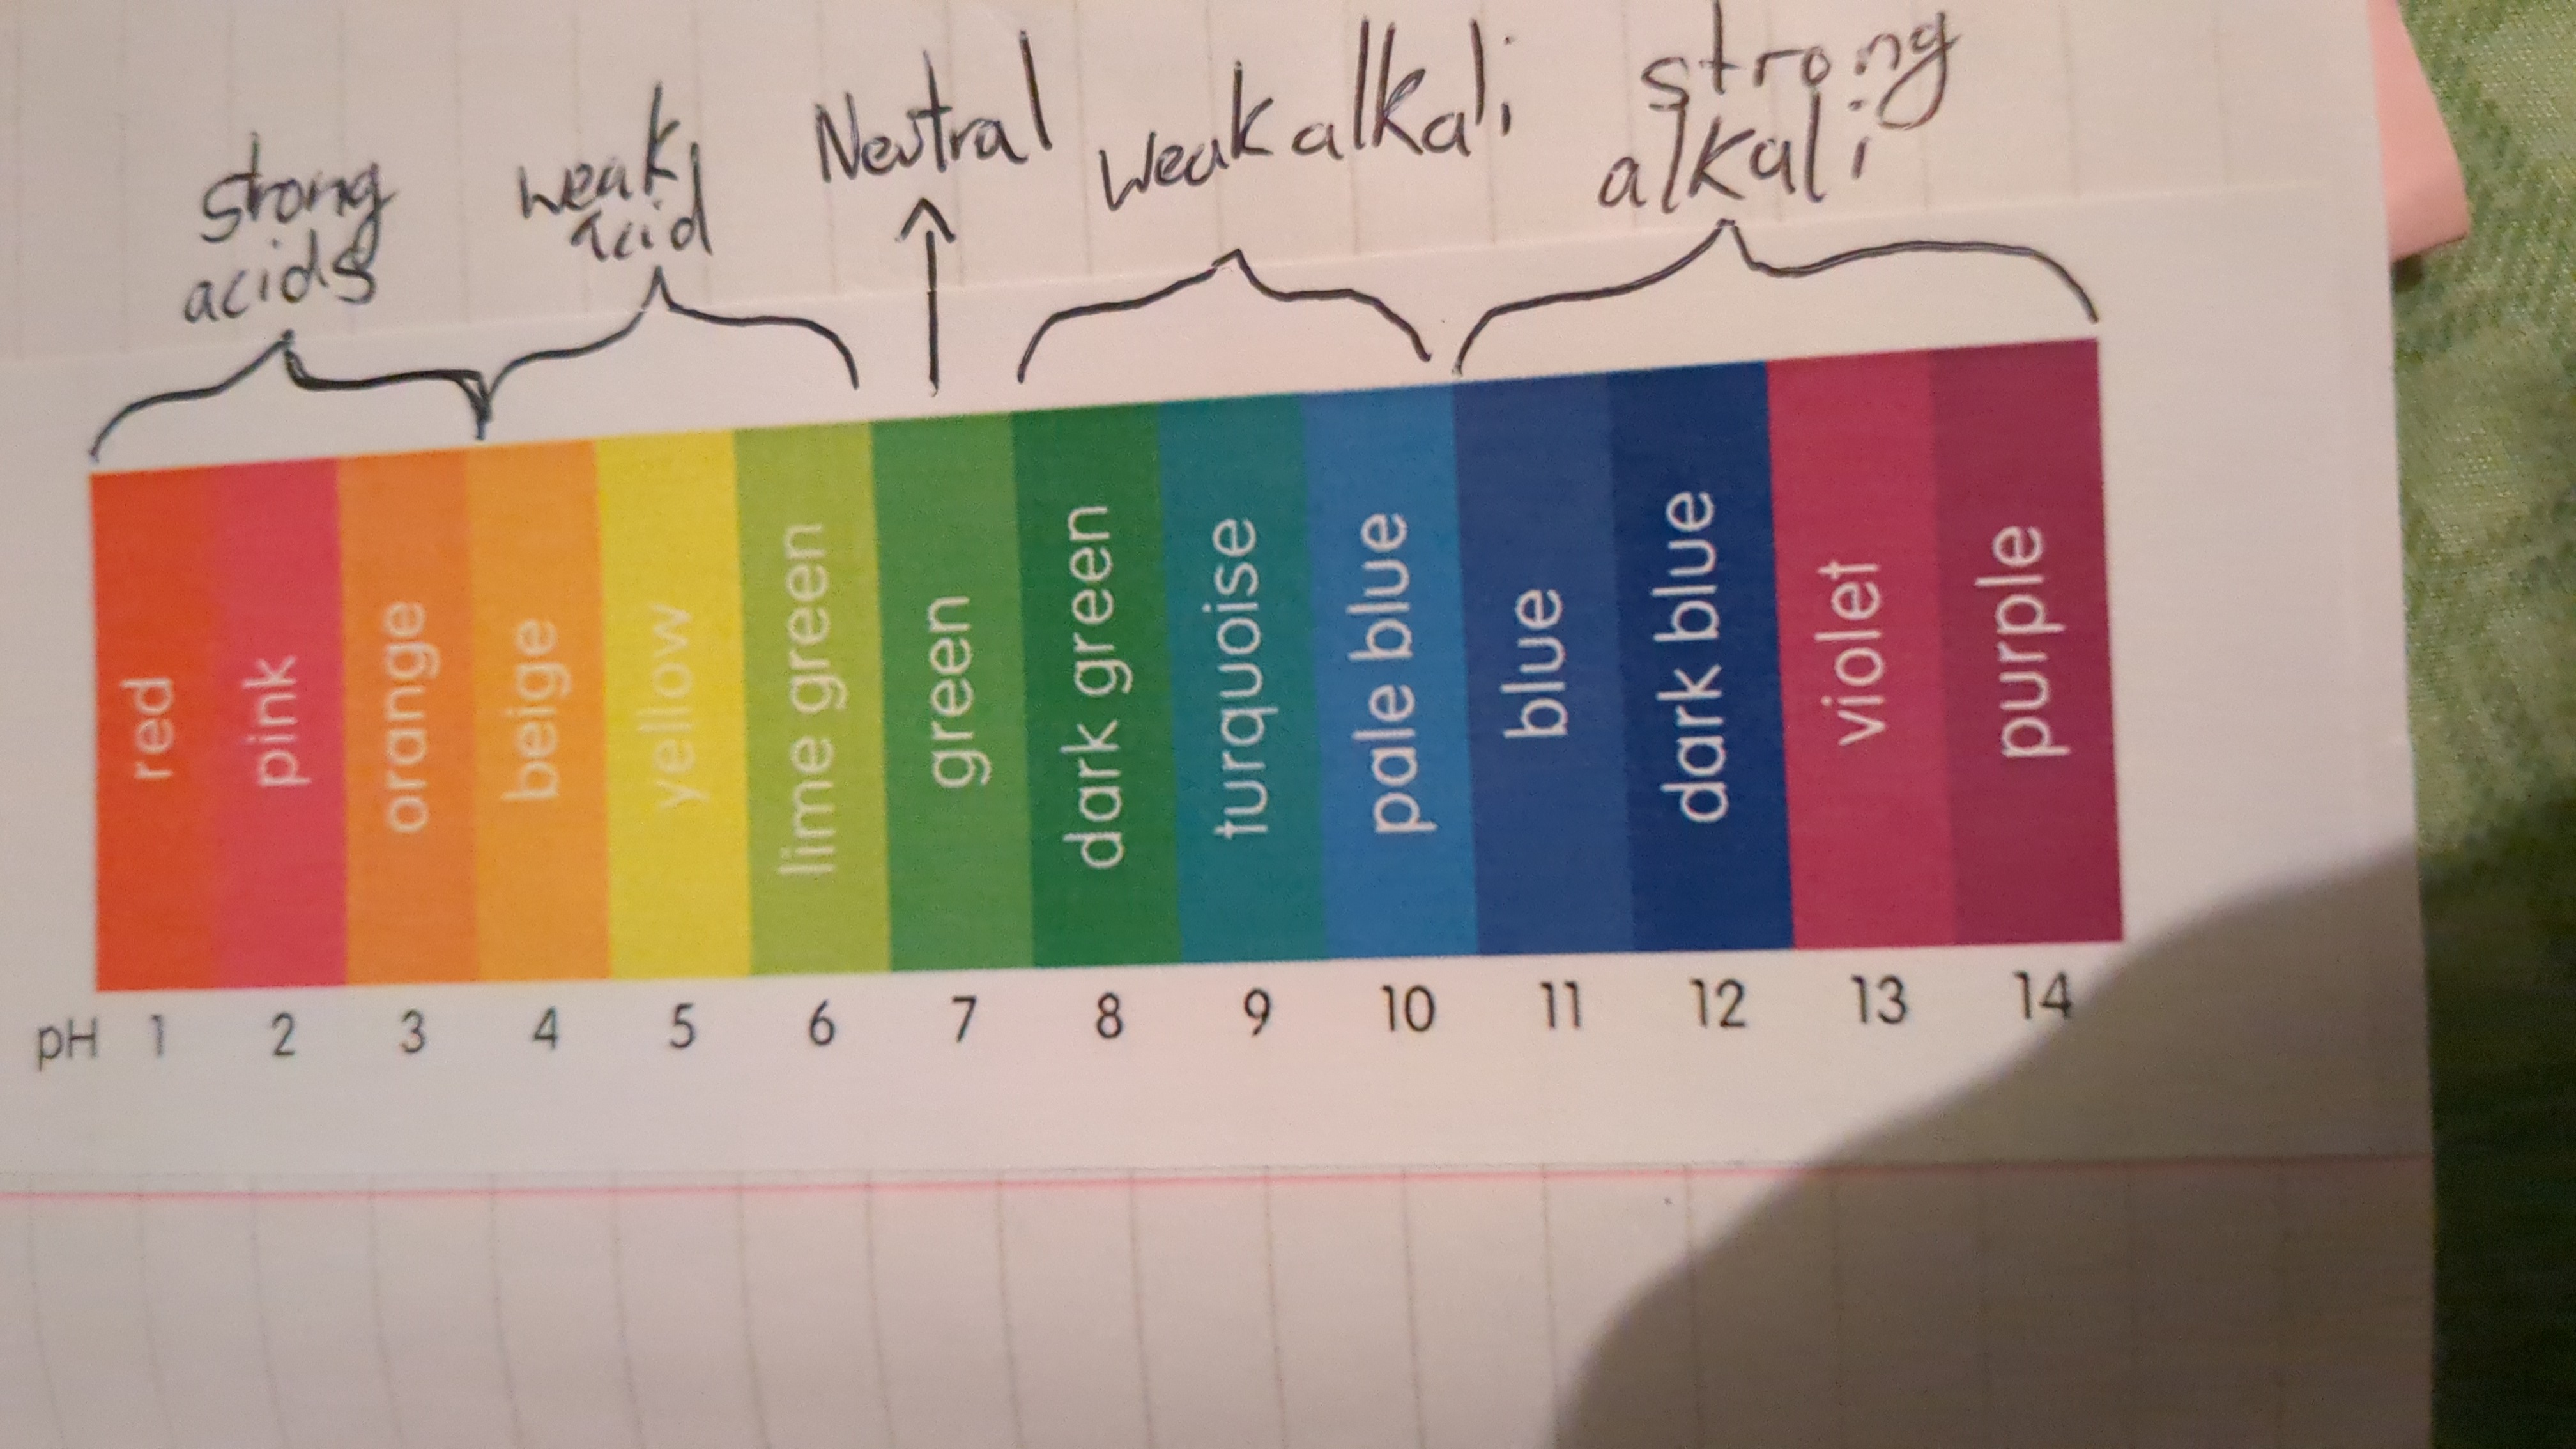 strong
acids
weak
acid
Neutral
weak alkali
strong
alkali
red
pink
orange
beige
yellow
lime green
green
dark green
turquoise
pale blue
blue
dark blue
violet
purple
pH 1 2 3 4 5 6 7 8 9 10 11 12 13 14